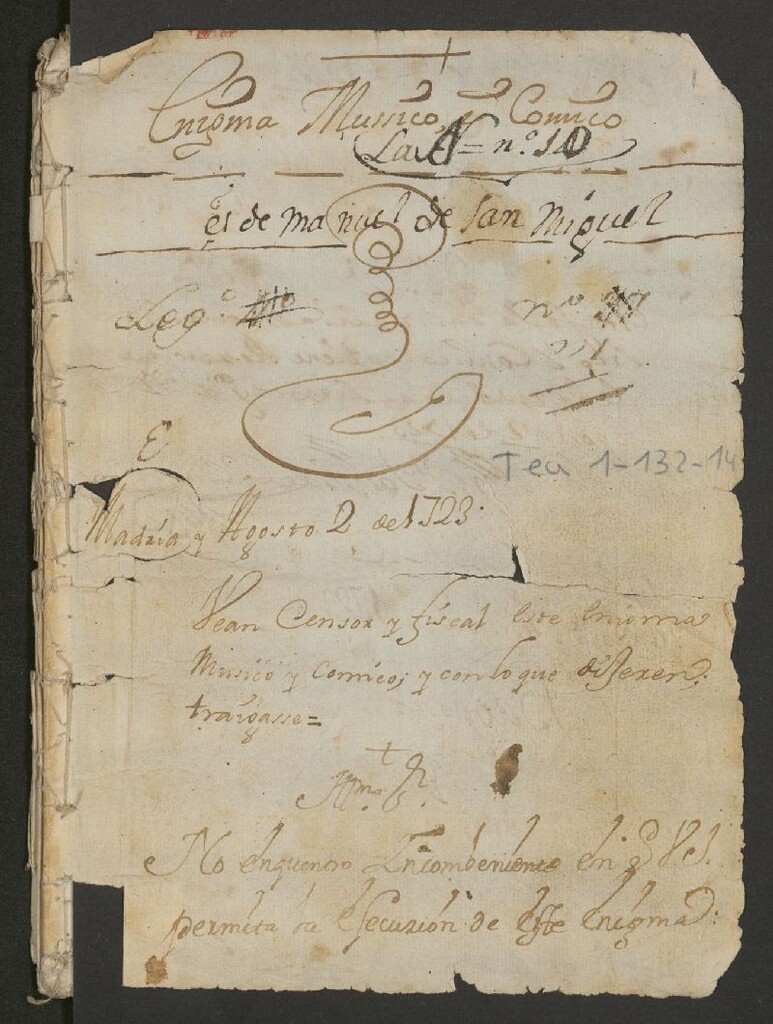 Enigma Mussico, y Comico
La A = nº 10
es de manuel de san miguel
Legº
nº
nº 1
E
Tea 1-132-14
Madrid y Agosto 2 de 1723.
Vean Censor y fiscal este enigma
Musico y Comico; y con lo que dixeren
traigasse =
No enquentro Incombeniente en q V S I.
permita la esecuzion de este enigma